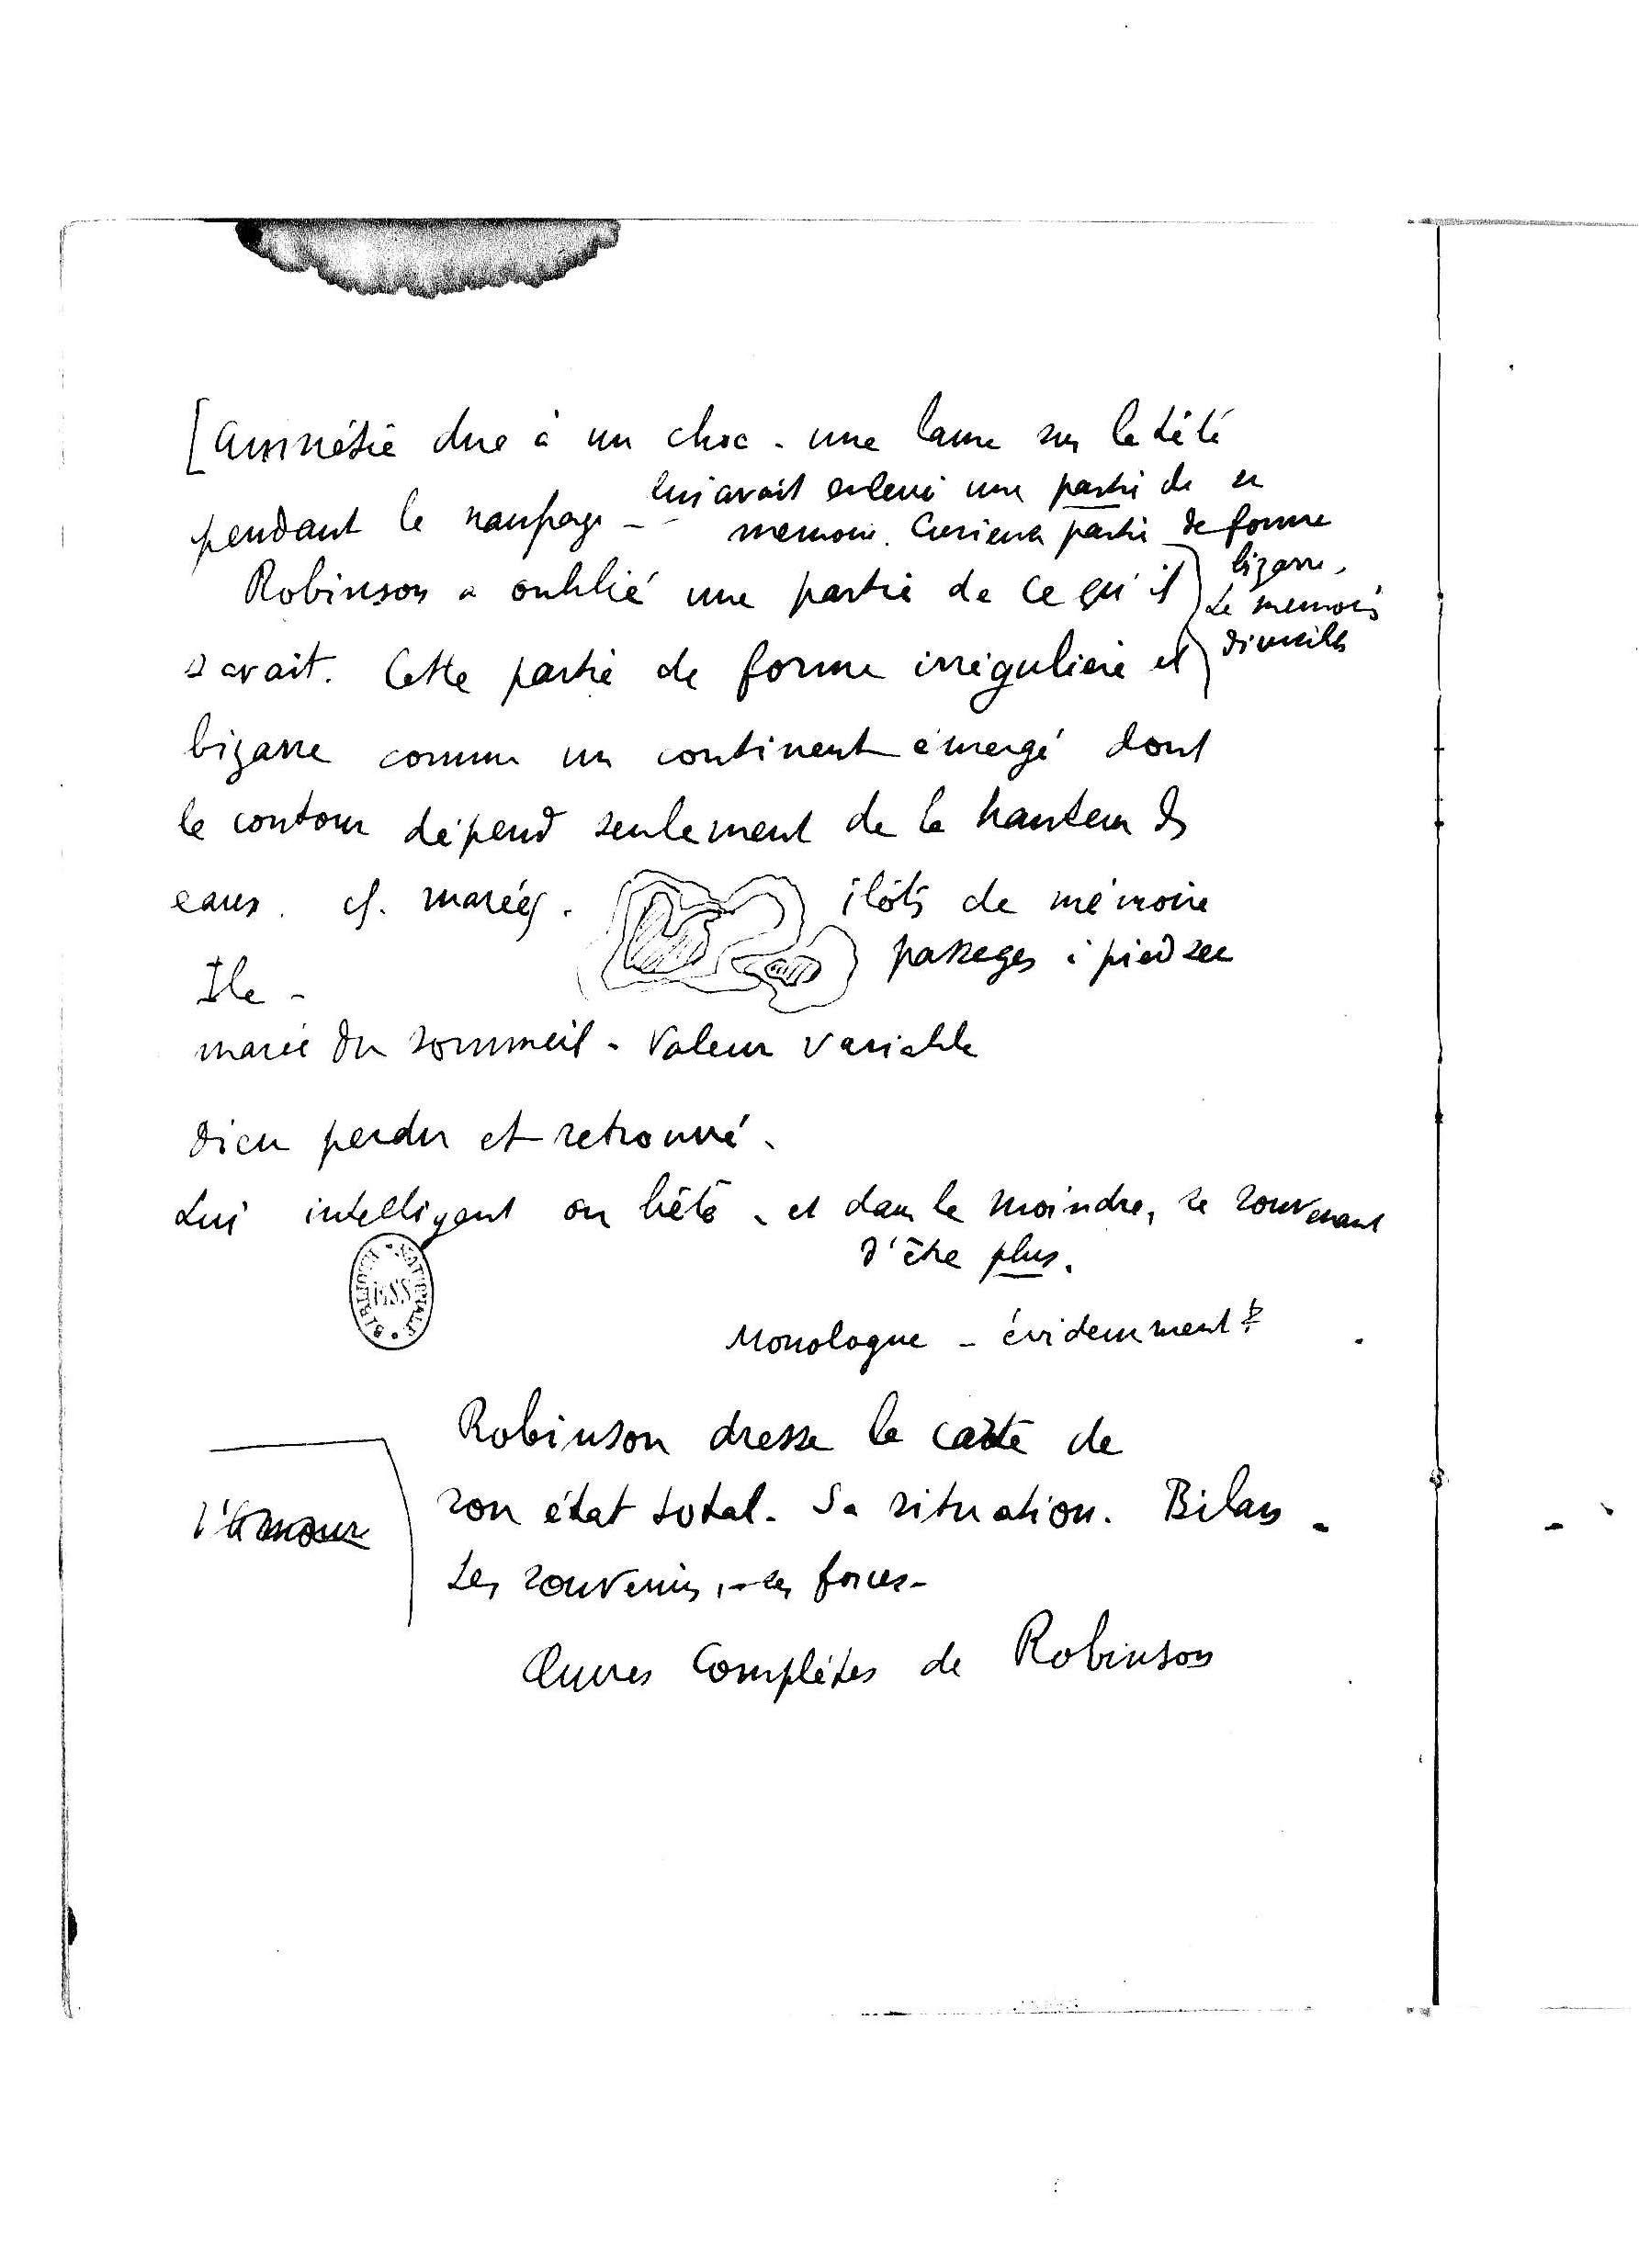 [Amnésie due à un choc - une lame sur la tête
pendant le naufrage - lui avait enlevé une partie de sa
mémoire. Curieuse partie de forme
bizarre.
Robinson a oublié une partie de ce qu'il
La mémoire
savait. Cette partie de forme irrégulière et
bizarre comme un continent émergé dont
le contour dépend seulement de la hauteur des
eaux. cf. marées.
îlots de mémoire
passages à pied sec
Ile -
marée du sommeil - Valeur variable
Dieu perdu et retrouvé.
Lui intelligent ou bête - et dans le moindre, se souvenant
d'être plus.
BIBLIOTH. NATIONALE
MSS
Monologue - évidemment?
Robinson dresse la carte de
son état total. Sa situation. Bilan -
l'Amour
Les souvenirs, - ses forces -
Œuvres Complètes de Robinson